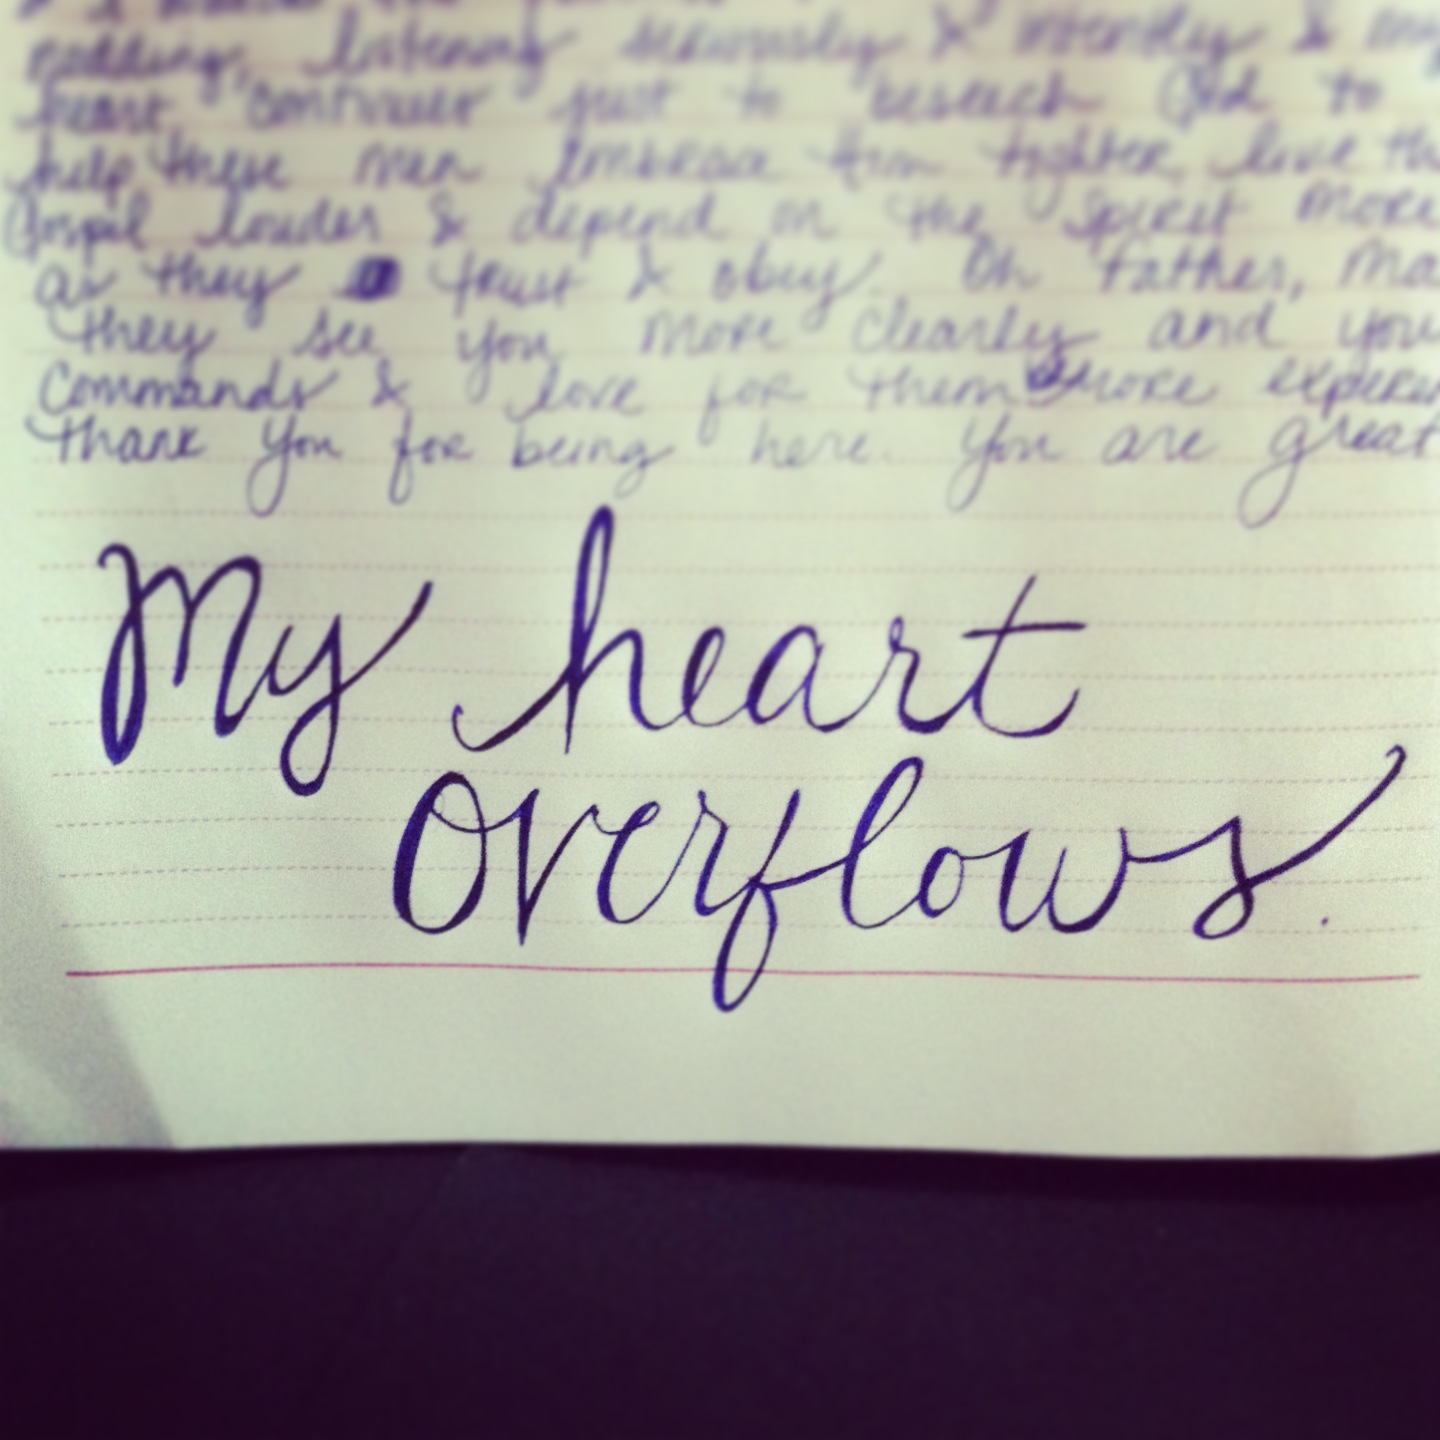 nodding, listening seriously & intently & my
heart continues just to beseech God to
help these men embrace Him tighter, love th
Gospel louder & depend on the Spirit more
as they trust & obey. Oh Father, ma
they see you more clearly and you
Commands & love for them more experien
thank you for being here. You are great
My heart
Overflows.